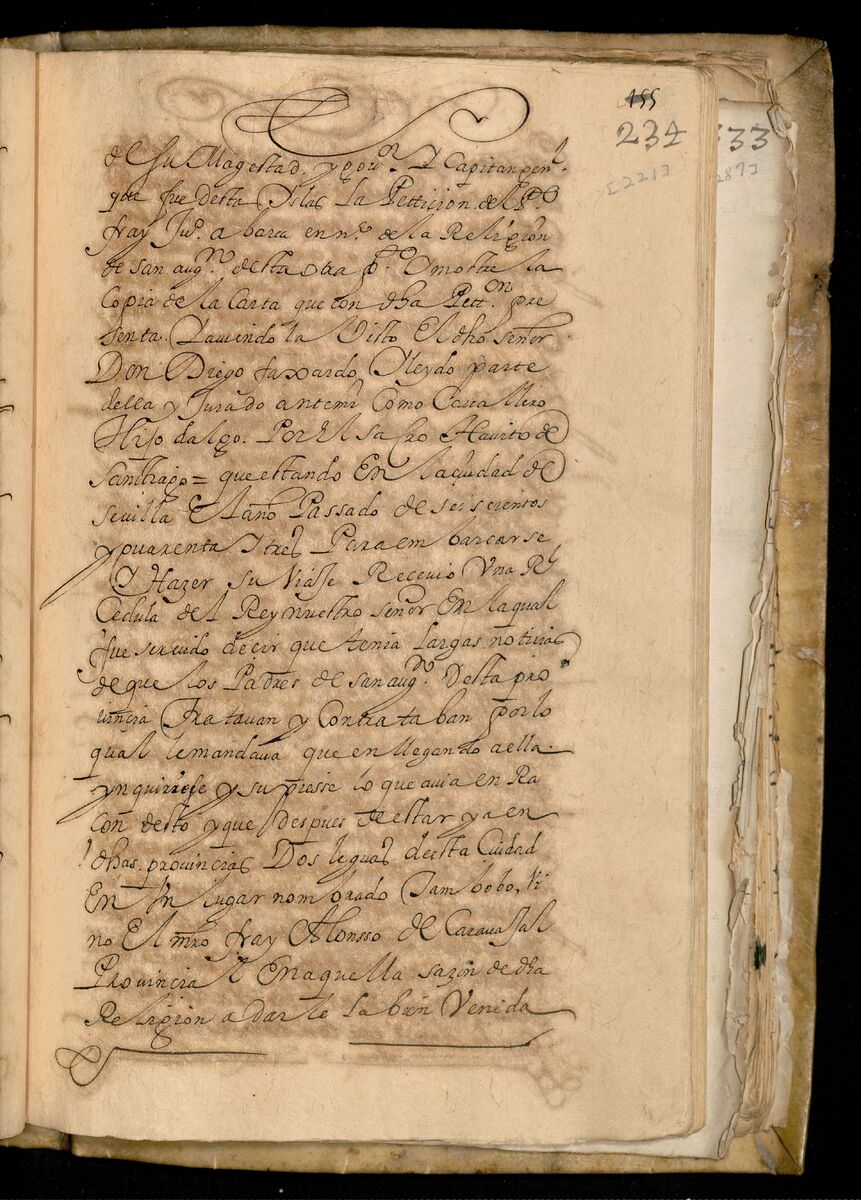 155
234
333
[221]
287]
de Su Magestad. y gov.or Y Capitan gen.l
que fue desta Yslas La Petticion del P.e
fray Ju.o a barca en n.e de la Religion
de san aug.n desta otra p.te Y mostre la
Copia de la Carta que con dha Pett.on pre
senta. Y aviendo la Visto El dho señor
Don Diego faxardo, Y leydo parte
della y Jurado antemi Como Cavallero
Hijo dalgo. Por El sacro Havito de
Santtiago = que estando En la ciudad de
sevilla El año Passado de seiscientos
y quarenta Y tres Para embarcarse
Y Hazer su Viaje Recevio Una Rl
Cedula del Rey nuestro señor En la qual
fue servido decir que tenia Largas noticias
de que los Padres de san aug.n Desta pro
vincia Tratavan y Contrataban por lo
qual le mandava que en llegando a ella
ynquiriese y supiesse lo que avia en Ra
con desto y que despues de estar ya en
dhas. provincias Dos leguas desta Ciudad
En Un lugar nombrado Tambobo, Vi
no El mro fray Alonsso de Caravajal
Provincial En aquella sazon de dha
Religion a darle La bien Venida